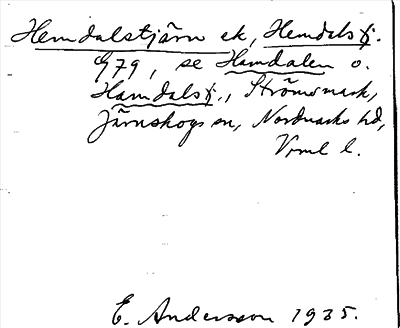 Hemdalstjärn ek, Hemdalstj.
G79, se Hamdalen o.
Hamdalstj., Strömsmark,
Järnskogs sn, Nordmarks hd,
Vrml l.
E. Andersson 1935.